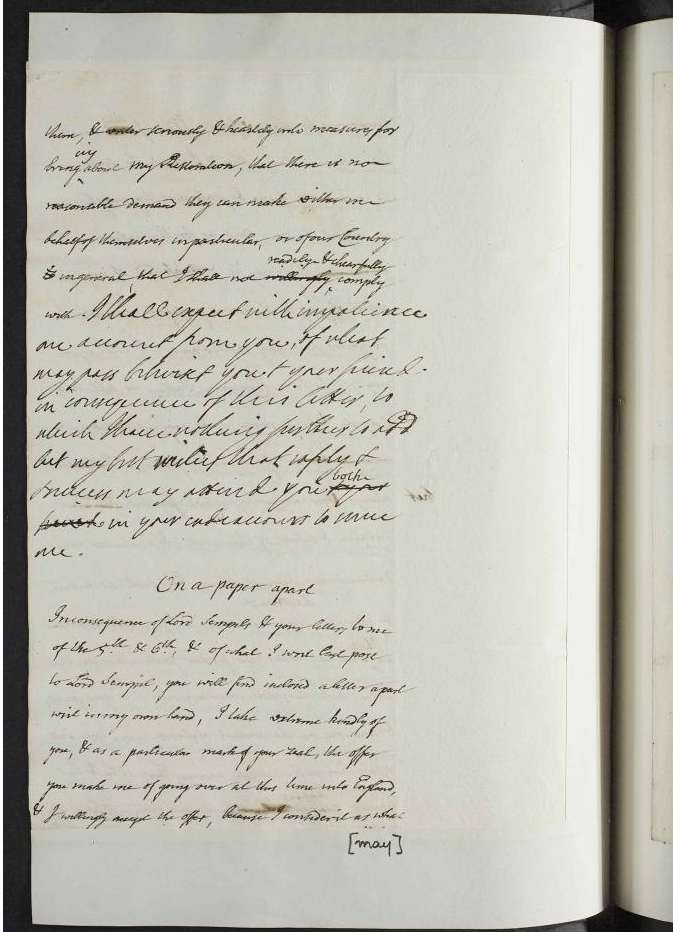 them, & enter seriously & heartily into measures for
ing
bring about my Restoration, that there is no
reasonable demand they can make either in
behalf of themselves in particular, or of our Country
readily & chearfully
in general, that I shall not willingly comply
with. I shall expect with impatience
an account from you, of what
may pass betwixt you & your friend
in consequence of this letter, to
which I have nothing further to add
but my best wishes that safety &
both
success may attend you & your
friend in your endeavours to serve
me.
On a paper apart
In consequence of Lord Sempils & your letters to me
of the 5th & 6th, & of what I writ last post
to Lord Sempil, you will find inclosed a letter apart
writ in my own hand, I take extreme kindly of
you, & as a particular mark of your zeal, the offer
you make me of going over at this time into England,
& I willingly accept the offer, because I consider it as what
[may]